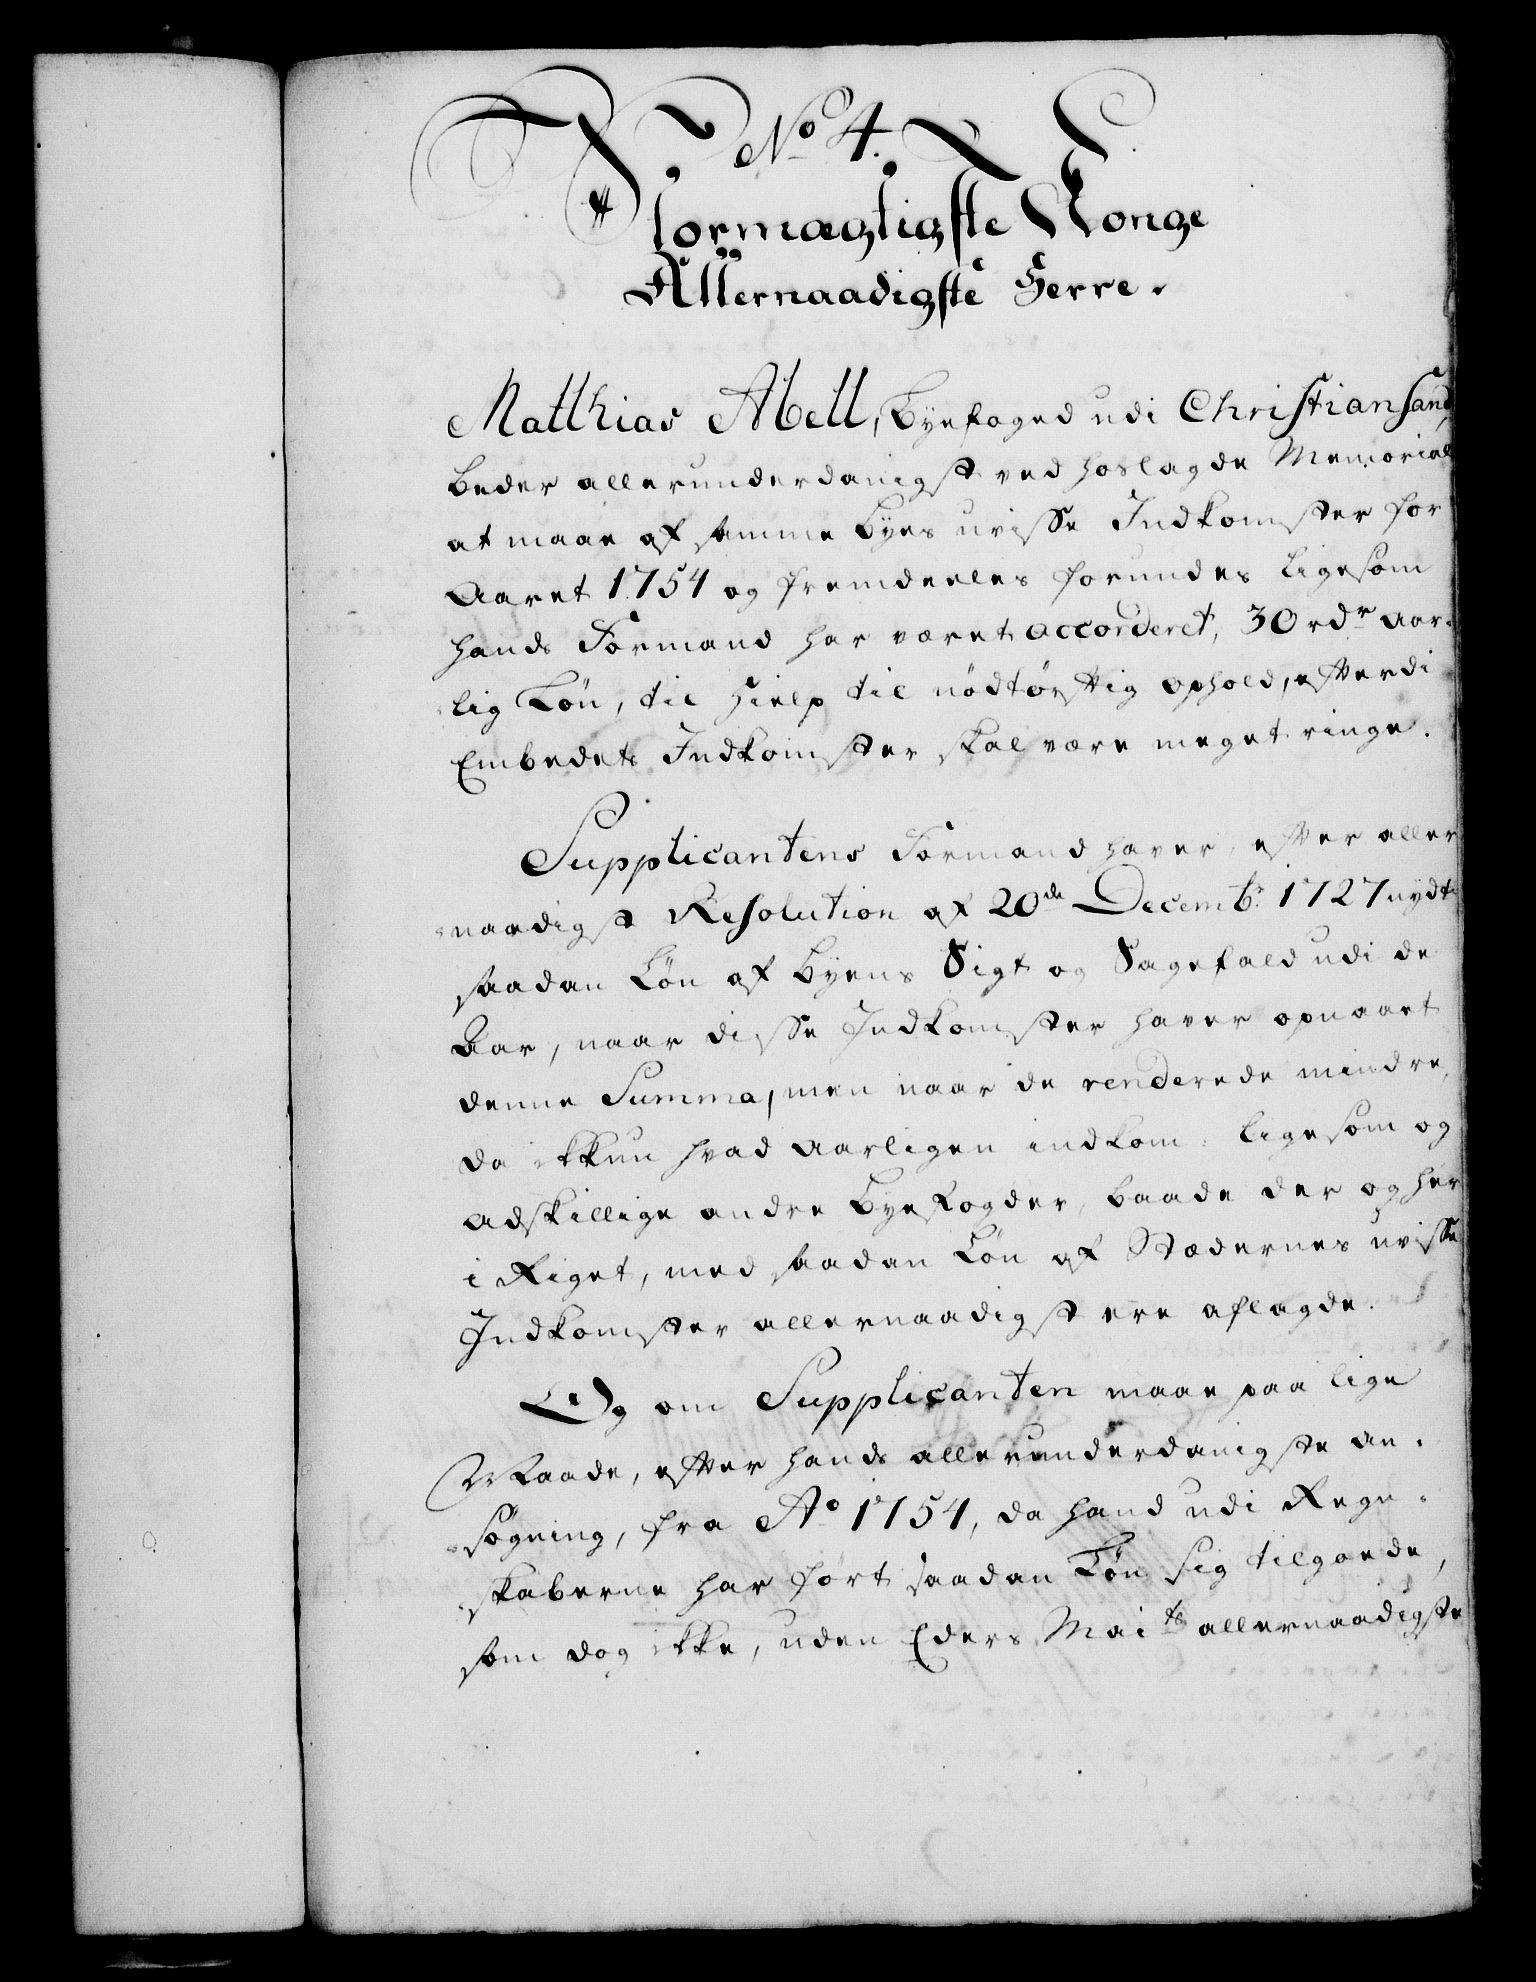 No 4.
Stormægtigste Konge
Allernaadigste Herre.
Matthias Abell, Byefoged udi Christiansand,
beder allerunderdanigst ved hoslagde Memorial
at maae af samme Byes uvisse Indkomster for
Aaret 1754 og fremdeeles forundes ligesom
hands Formand har været accorderet, 30 rdr aar-
lig Løn, til Hielp til nødtørftig ophold, efterdi
Embedets Indkomster skal være meget ringe.
Supplicantens Formand haver, efter aller
naadigst Resolution af 20de Decembr. 1727 nydt
saadan Løn af Byens Sigt og Sagefald udi de
Aar, naar disse Indkomster haver opnaaet
denne Summa, men naar de renderede mindre,
da ikkun hvad aarligen indkom: ligesom og
adskillige andre Byefogder, baade der og her
i Riget, med saadan Løn af Stædernes uvisse
Indkomster allernaadigst ere aflagde.
Og om Supplicanten maae paa lige
Maade, efter hands allerunderdanigste an-
søgning, fra Ao 1754, da hand udi Regn-
skaberne har ført saadan Løn sig tilgode,
som dog ikke, uden Eders Maits allernaadigste